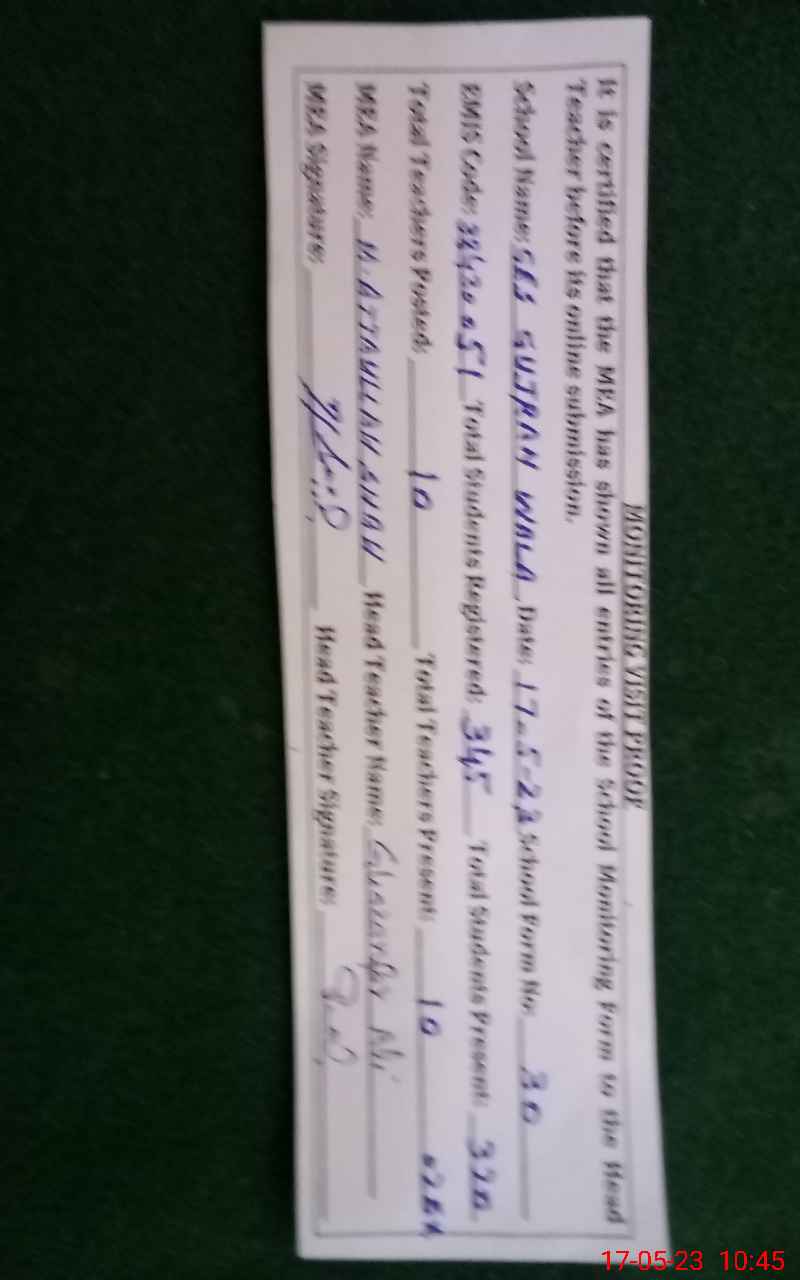 MONITORING VISIT PROOF
It is certified that the MEA has shown all entries of the School Monitoring Form to the Head
Teacher before its online submission.
School Name: GES GUJRAN WALA Date: 17-5-23 School Form No: 30
EMIS Code: 38430051 Total Students Registered: 345 Total Students Present: 320
Total Teachers Posted: 10 Total Teachers Present: 10
MEA Name: M. ATTAULLAH SHAH Head Teacher Name: Ghazanfar Ali
MEA Signature: Head Teacher Signature:
17-05-23 10:45